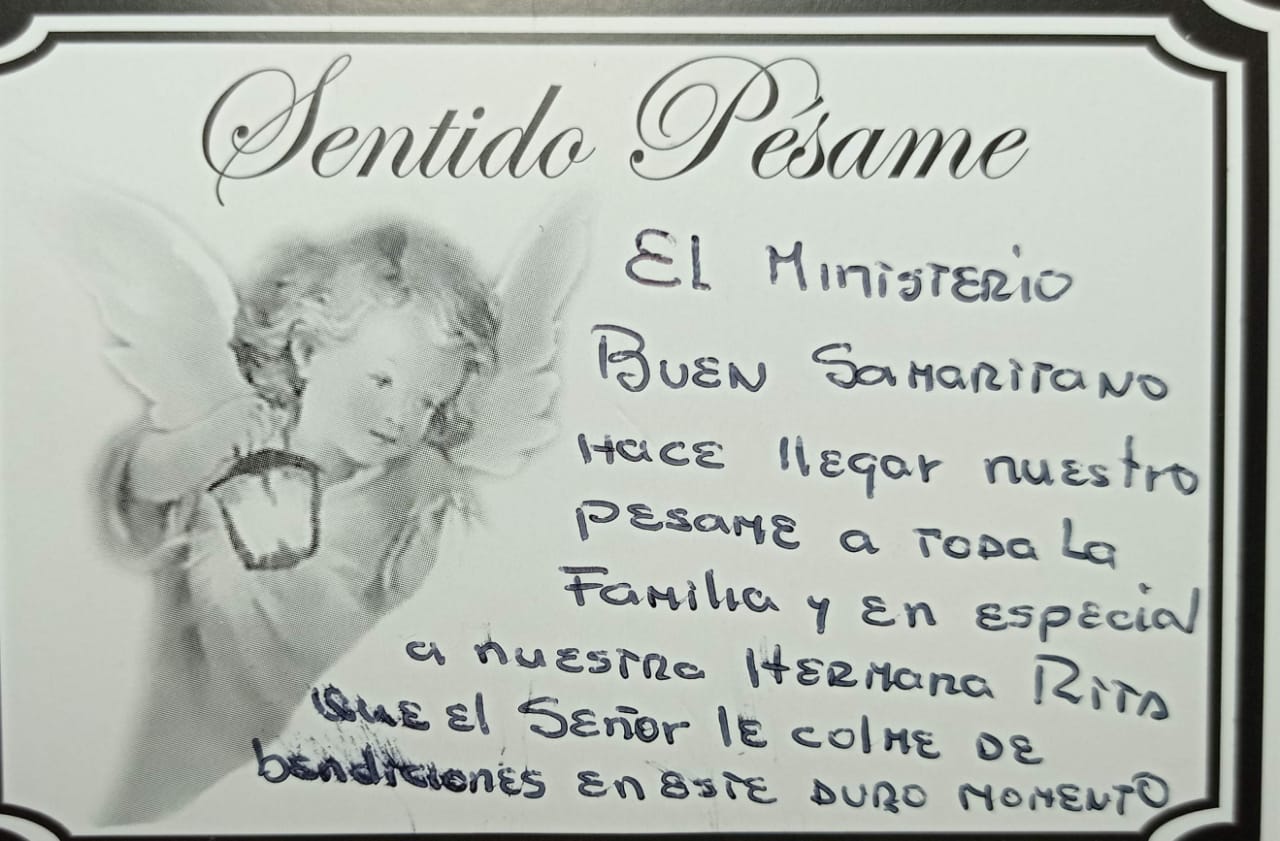 Sentido Pésame
El Ministerio
Buen Samaritano
Hace llegar nuestro
pesame a toda la
Familia y en especial
a nuestra Hermana Rita
Que el Señor le colme de
bendiciones en este duro momento